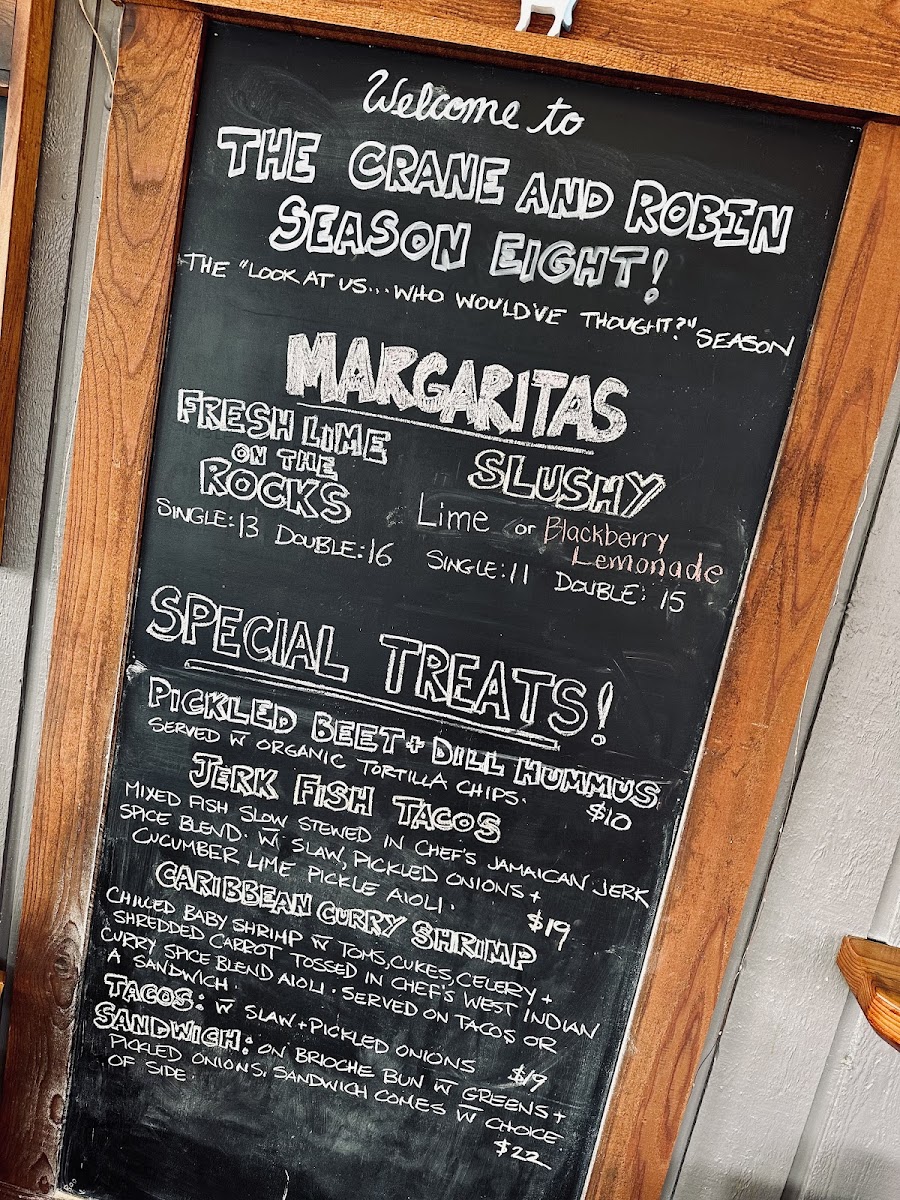 Welcome to
THE CRANE AND ROBIN
SEASON EIGHT!
THE "LOOK AT US...WHO WOULD'VE THOUGHT?" SEASON
MARGARITAS
FRESH LIME
ON THE
ROCKS
SINGLE:13 DOUBLE:16
SLUSHY
Lime or Blackberry
Lemonade
SINGLE:11 DOUBLE: 15
SPECIAL TREATS!
PICKLED BEET + DILL HUMMUS
SERVED W ORGANIC TORTILLA CHIPS.
$10
JERK FISH TACOS
MIXED FISH SLOW STEWED IN CHEF'S JAMAICAN JERK
SPICE BLEND. W SLAW, PICKLED ONIONS +
CUCUMBER LIME PICKLE AIOLI.
$19
CARIBBEAN CURRY SHRIMP
CHILLED BABY SHRIMP W TOMS, CUKES, CELERY +
SHREDDED CARROT TOSSED IN CHEF'S WEST INDIAN
CURRY SPICE BLEND AIOLI. SERVED ON TACOS OR
A SANDWICH
TACOS: W SLAW + PICKLED ONIONS
$19
SANDWICH: ON BRIOCHE BUN W GREENS +
PICKLED ONIONS. SANDWICH COMES W CHOICE
OF SIDE.
$22